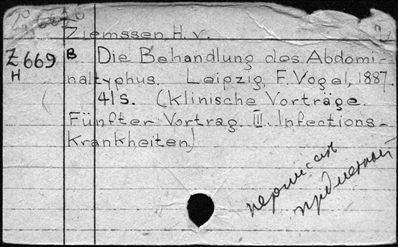 Ziemssen H. v.
Z 669 B Die Behandlung des Abdomi-
H naltyphus. Leipzig, F. Vogel, 1887.
41 s. (Klinische Vorträge.
Fünfter Vortrag. III. Infections-
Krankheiten)